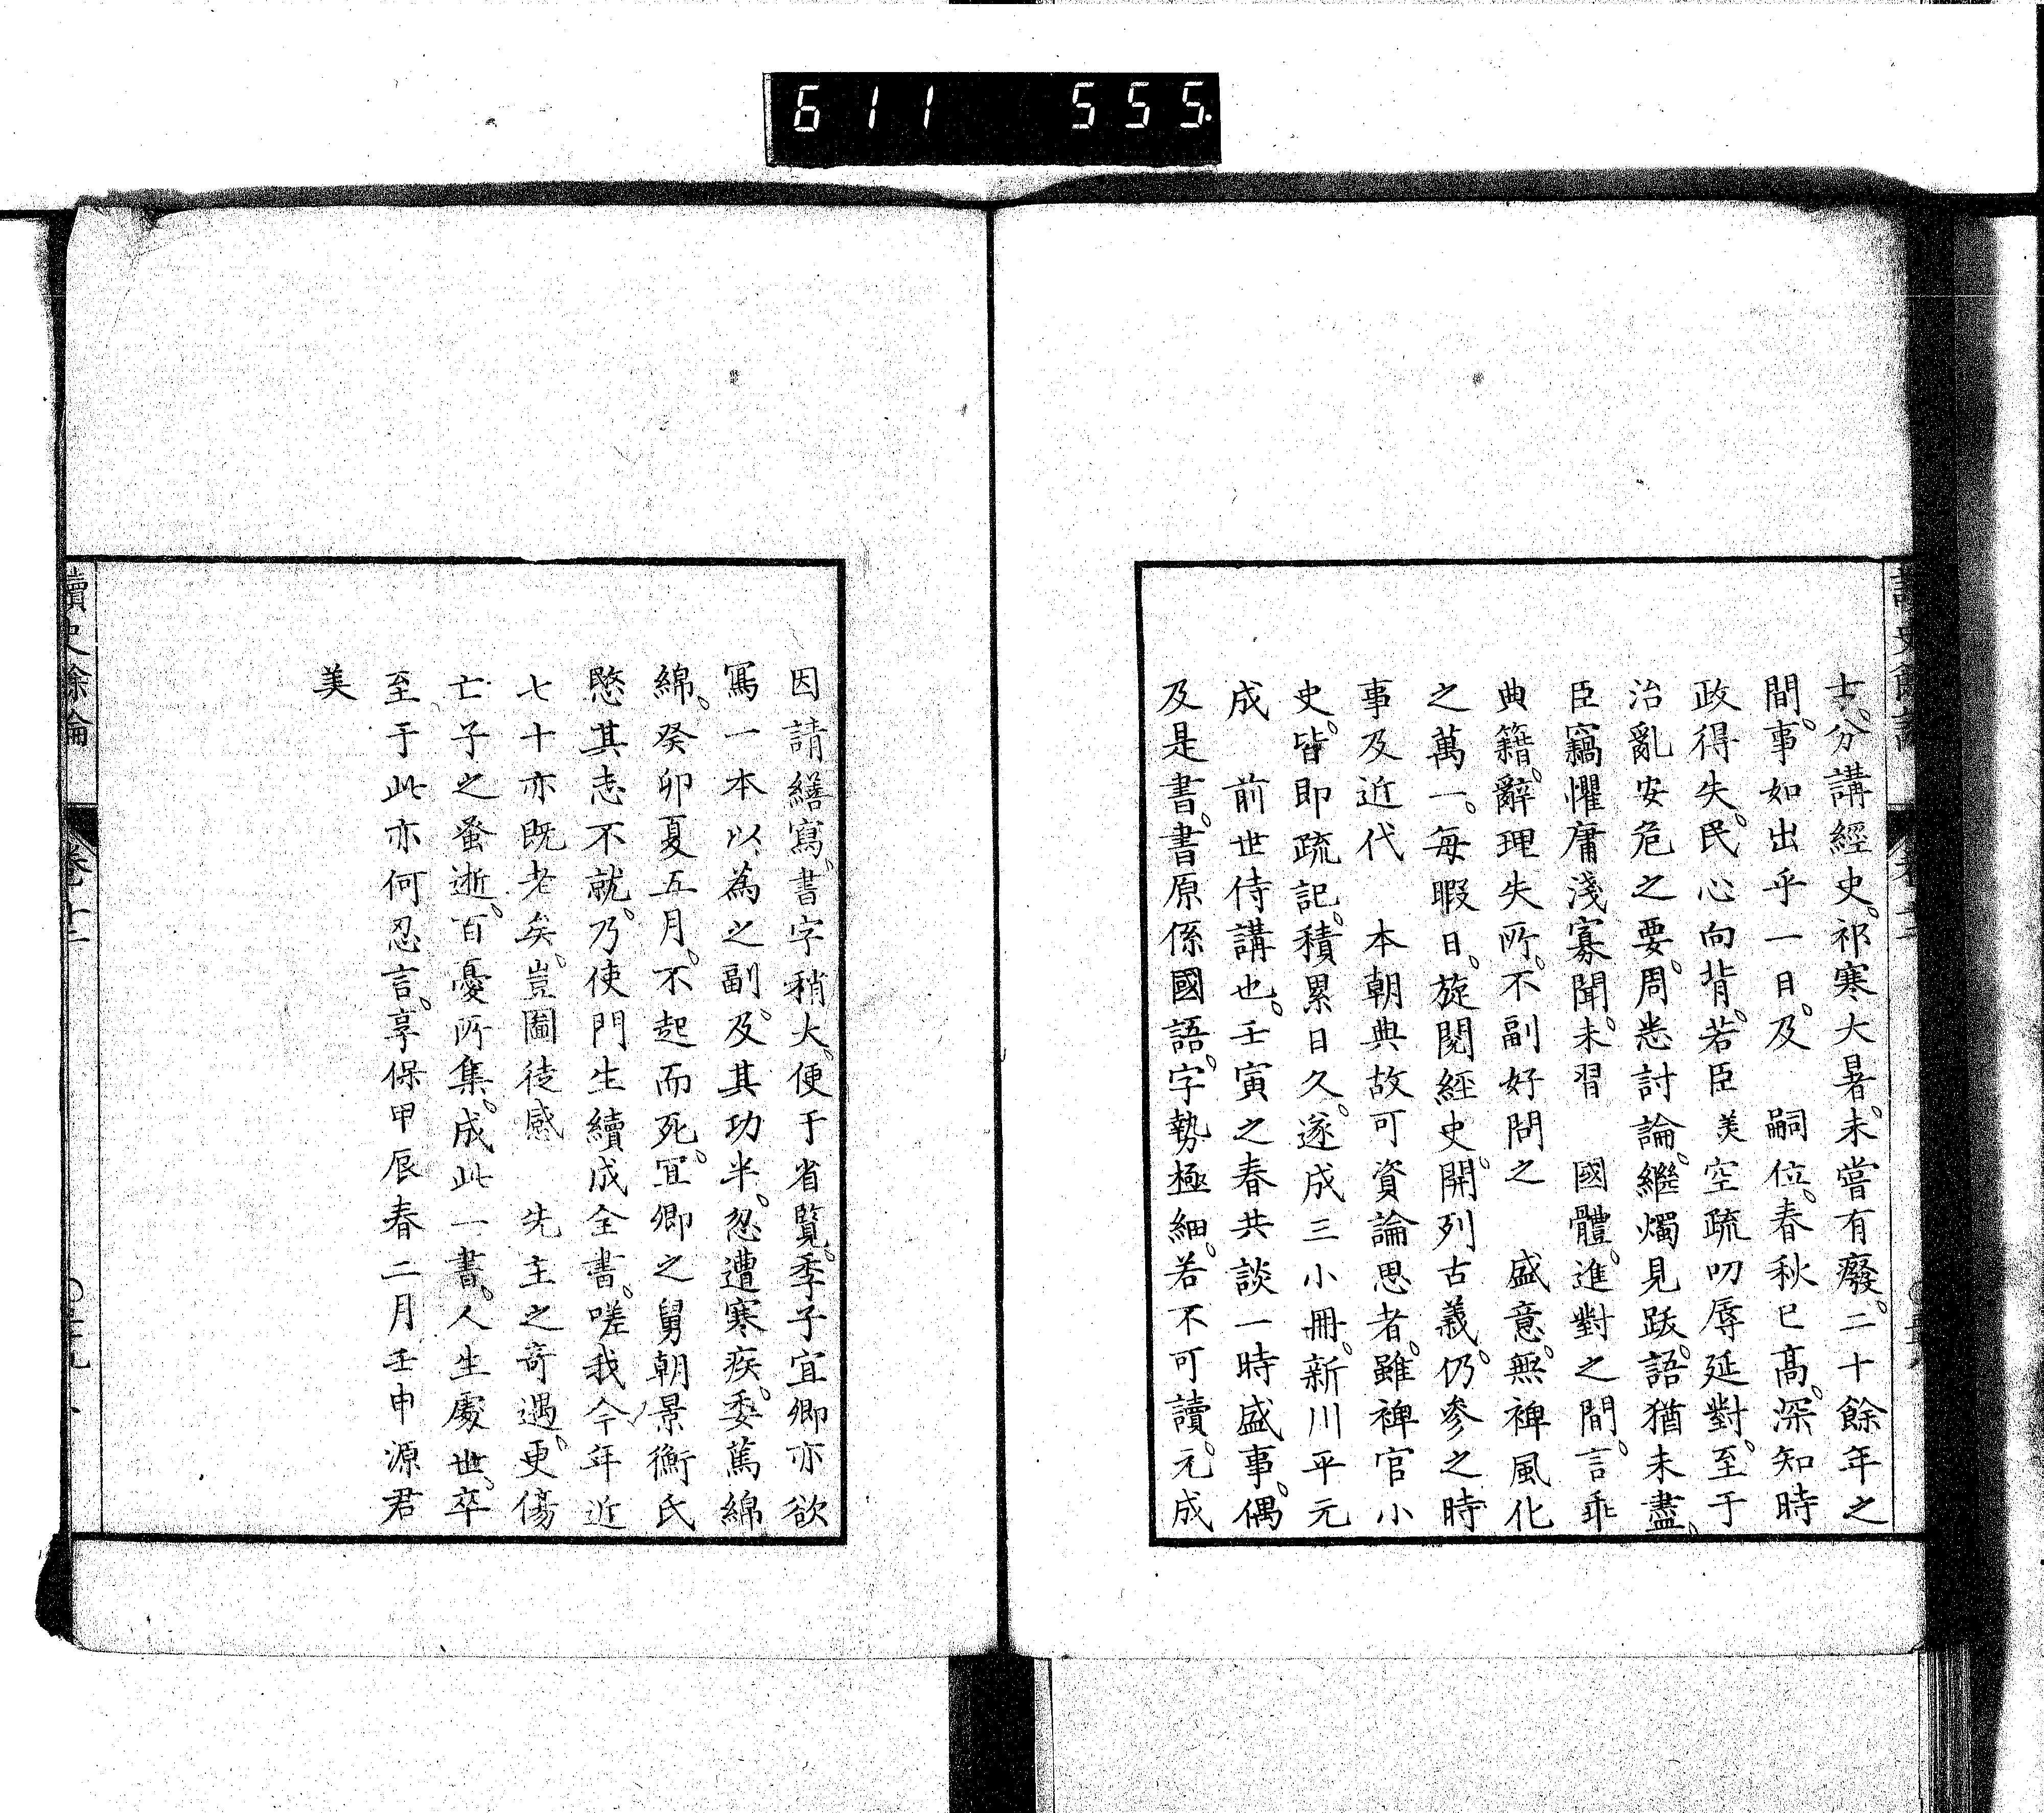 611 555.
士。分講經史。祁寒大暑。未嘗有癈。二十餘年之
間。事如出乎一日。及　嗣位。春秋已高。深知時
政得失。民心向背。若臣美空疏叨辱延對。至于
治亂安危之要。周悉討論。繼燭見跋。語猶未盡。
臣竊懼庸淺寡聞。未習　國體。進對之間。言乖
典籍。辭理失所。不副好問之　盛意。無裨風化
之萬一。每暇日。旋閱經史。開列古義。仍參之時
事及近代　本朝典故可資論思者。雖裨官小
史。皆即疏記。積累日久。遂成三小冊。新川平元
成　前世侍講也。壬寅之春共談一時盛事。偶
及是書。書原係國語。字勢極細。若不可讀。元成
因請繕寫。書字稍大。便于省覧。季子宜卿亦欲
寫一本以為之副。及其功半。忽遭寒疾。委篤綿
綿。癸卯夏五月。不起而死。宜卿之舅朝景衡氏
愍其志不就。乃使門生續成全書。嗟我今年近
七十亦既老矣。豈圖徒感　先主之奇遇。更傷
亡子之蚤逝。百憂所集。成此一書。人生處世。卒
至于此亦何忍言。享保甲辰春二月壬申源君
美
讀史餘論　卷十二